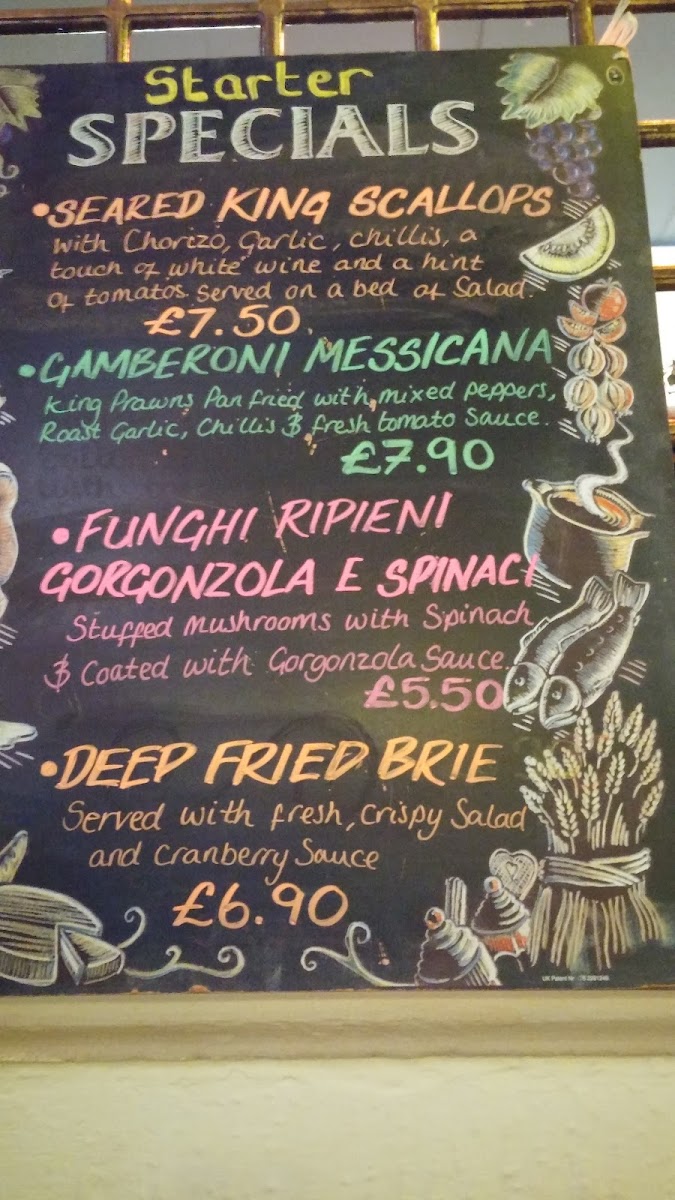 Starter
SPECIALS
• SEARED KING SCALLOPS
with Chorizo, Garlic, chillis, a
touch of white wine and a hint
of tomatos. Served on a bed of Salad.
£7.50.
• GAMBERONI MESSICANA
King Prawns Pan fried with mixed peppers,
Roast Garlic, Chillis & fresh tomato Sauce.
£7.90
• FUNGHI RIPIENI
GORGONZOLA E SPINACI
Stuffed Mushrooms with Spinach
& Coated with Gorgonzola Sauce.
£5.50
• DEEP FRIED BRIE
Served with fresh, crispy Salad
and Cranberry Sauce
£6.90
UK Patent Nr